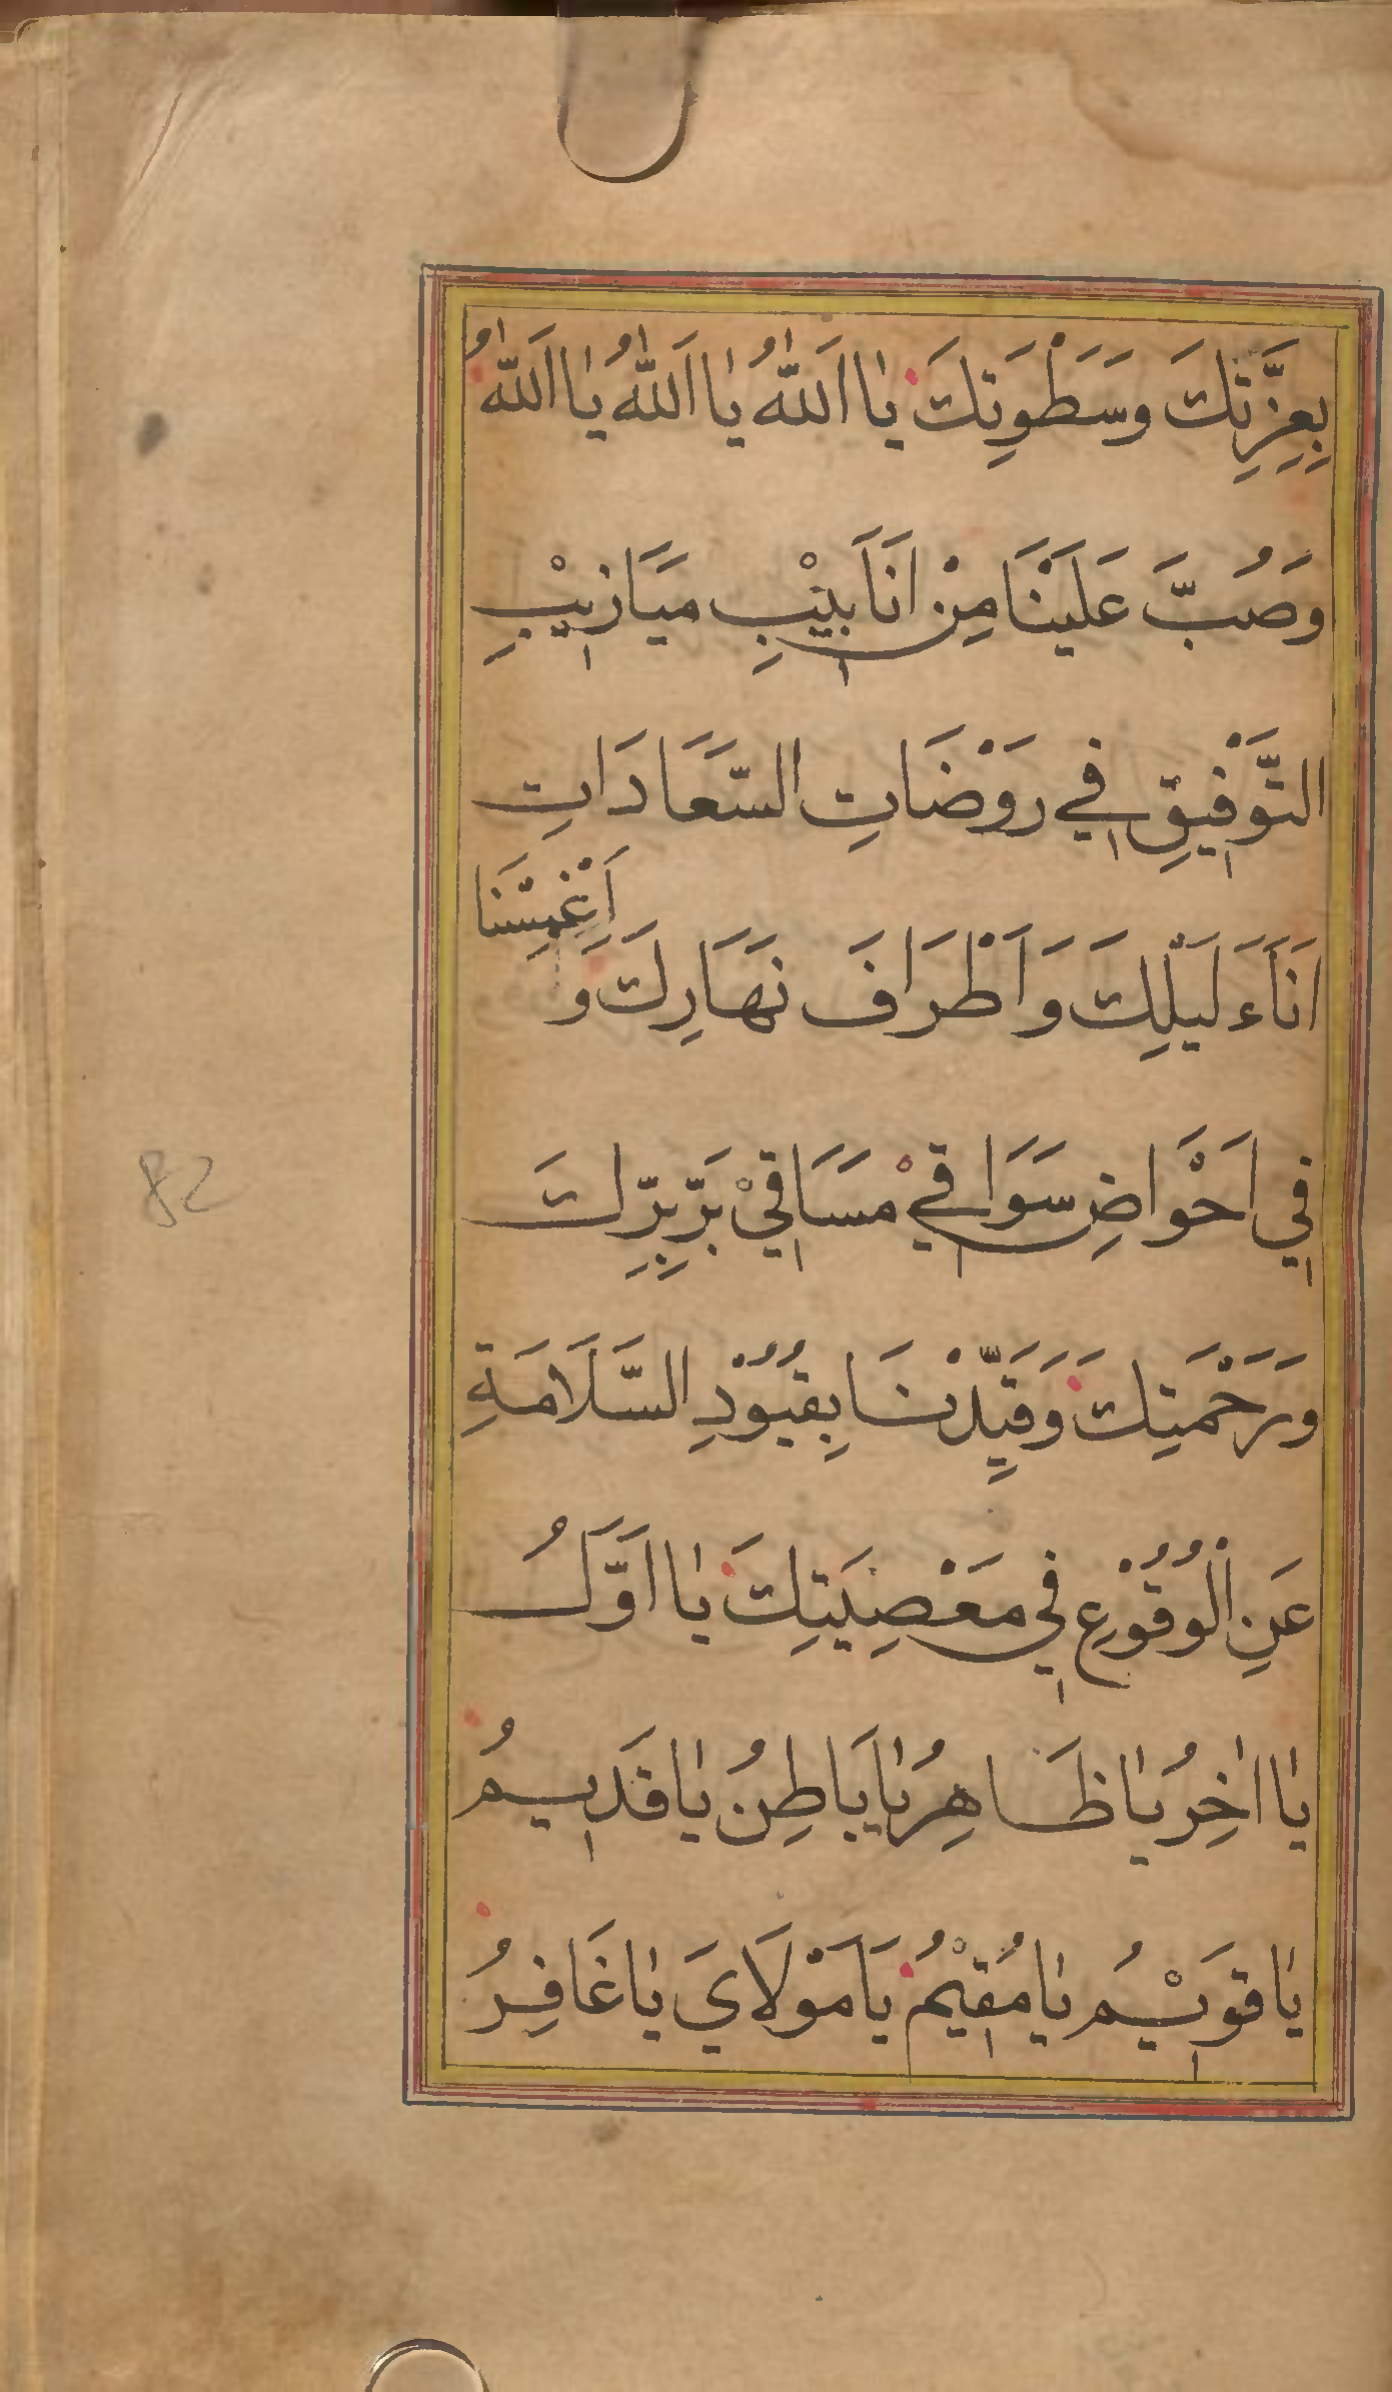 بِعِزَّتِكَ وَسَطْوَتِكَ يَا اَللّٰهُ يَا اَللّٰهُ يَا اَللّٰهُ
وَصُبَّ عَلَيْنَا مِنْ اَنَابِيْبِ مَيَازِيْبِ
التَّوْفِيقِ فِي رَوْضَاتِ السَّعَادَاتِ
اَنَآءَ لَيْلِكَ وَاَطْرَافَ نَهَارِكَ وَ
اَغْمِسْنَا
فِي اَحْوَاضِ سَوَاقِيْ مَسَاقِيْ بَرِّ بِرِّكَ
وَرَحْمَتِكَ وَقَيِّدْنَا بِقُيُوْدِ السَّلَامَةِ
عَنِ الْوُقُوْعِ فِي مَعْصِيَتِكَ يَا اَوَّلُ
يَا اٰخِرُ يَا ظَاهِرُ يَا بَاطِنُ يَا قَدِيمُ
يَا قَوِيْمُ يَا مُقِيْمُ يَا مَوْلَايَ يَا غَافِرُ
82